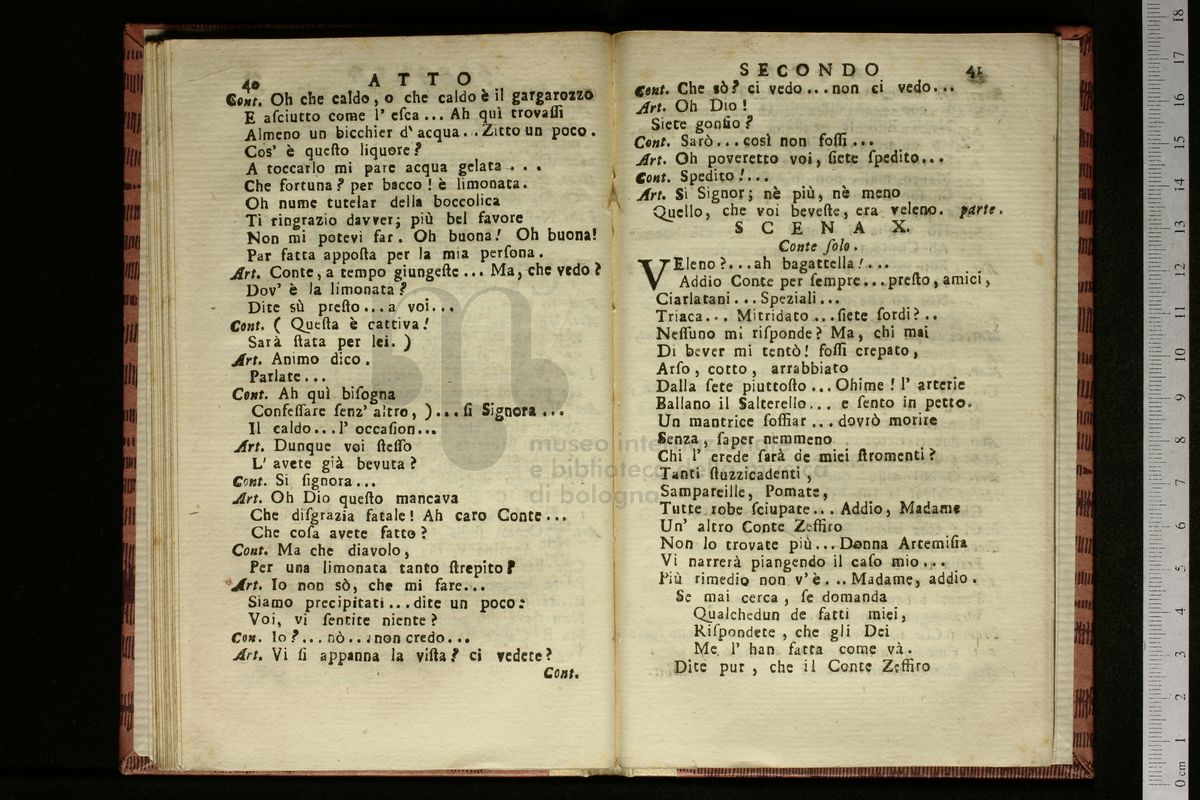 40
ATTO
Cont. Oh che caldo, o che caldo è il gargarozzo
E aſciutto come l' eſca ... Ah quì trovaſſi
Almeno un bicchier d' acqua.. Zitto un poco.
Cos' è queſto liquore?
A toccarlo mi pare acqua gelata . . .
Che fortuna? per bacco! è limonata.
Oh nume tutelar della boccolica
Ti ringrazio davver; più bel favore
Non mi potevi far. Oh buona! Oh buona!
Par fatta appoſta per la mia perſona.
Art. Conte, a tempo giungeſte ... Ma, che vedo?
Dov' è la limonata?
Dite sù preſto...a voi...
Cont. ( Queſta è cattiva!
Sarà ſtata per lei. )
Art. Animo dico.
Parlate...
Cont. Ah quì biſogna
Confeſſare ſenz' altro, )...ſi Signora ...
Il caldo...l' occaſion...
Art. Dunque voi ſteſſo
L' avete già bevuta?
Cont. Si ſignora...
Art. Oh Dio queſto mancava
Che diſgrazia fatale! Ah caro Conte...
Che coſa avete fatto?
Cont. Ma che diavolo,
Per una limonata tanto ſtrepito?
Art. Io non sò, che mi fare...
Siamo precipitati...dite un poco:
Voi, vi ſentite niente?
Con. Io?...nò...non credo...
Art. Vi ſi appanna la viſta? ci vedete?
Cont.
SECONDO
41
Cont. Che sò? ci vedo...non ci vedo...
Art. Oh Dio!
Siete gonfio?
Cont. Sarò...così non foſſi...
Art. Oh poveretto voi, ſiete ſpedito...
Cont. Spedito!...
Art. Si Signor; nè più, nè meno
Quello, che voi beveſte, era veleno. parte.
SCENA X.
Conte ſolo.
VEleno?...ah bagattella!...
Addio Conte per ſempre...preſto, amici,
Ciarlatani...Speziali...
Triaca... Mitridato...ſiete ſordi?..
Neſſuno mi riſponde? Ma, chi mai
Di bever mi tentò! foſſi crepato,
Arſo, cotto, arrabbiato
Dalla ſete piuttoſto...Ohime! l' arterie
Ballano il Salterello... e ſento in petto.
Un mantrice ſoffiar...dovrò morire
Senza, ſaper nemmeno
Chi l' erede ſarà de miei ſtromenti?
Tanti ſtuzzicadenti,
Sampareille, Pomate,
Tutte robe ſciupate... Addio, Madame
Un' altro Conte Zeffiro
Non lo trovate più...Donna Artemiſia
Vi narrerà piangendo il caſo mio...
Più rimedio non v'è...Madame, addio.
Se mai cerca, ſe domanda
Qualchedun de fatti miei,
Riſpondete, che gli Dei
Me l' han fatta come và.
Dite pur, che il Conte Zeffiro
museo inte
e biblioteca della musica
di bologna
0 cm 1 2 3 4 5 6 7 8 9 10 11 12 13 14 15 16 17 18